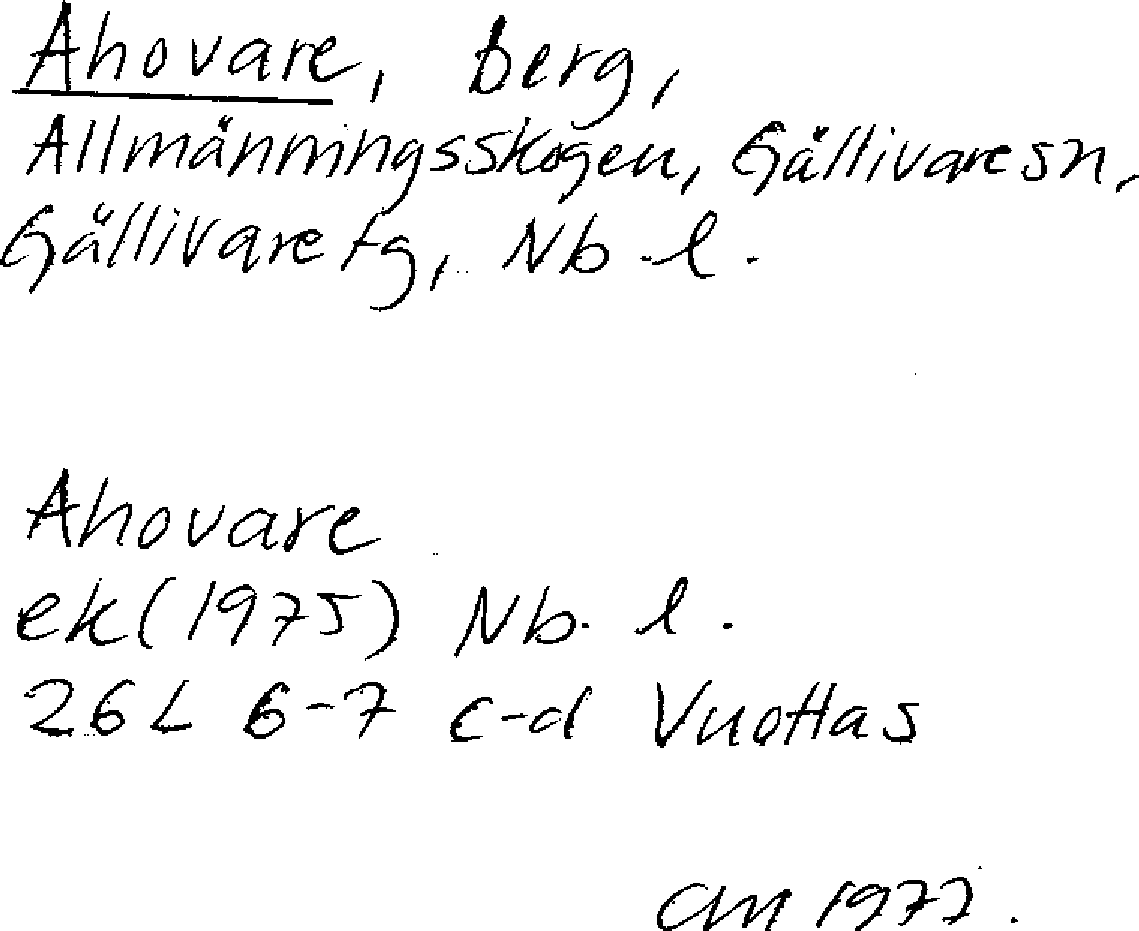 Ahovare, berg,
Allmänningsskogen, Gällivare sn,
Gällivare tg, Nb. l.
Ahovare
ek (1975) Nb. l.
26L 6-7 c-d Vuottas
1977.